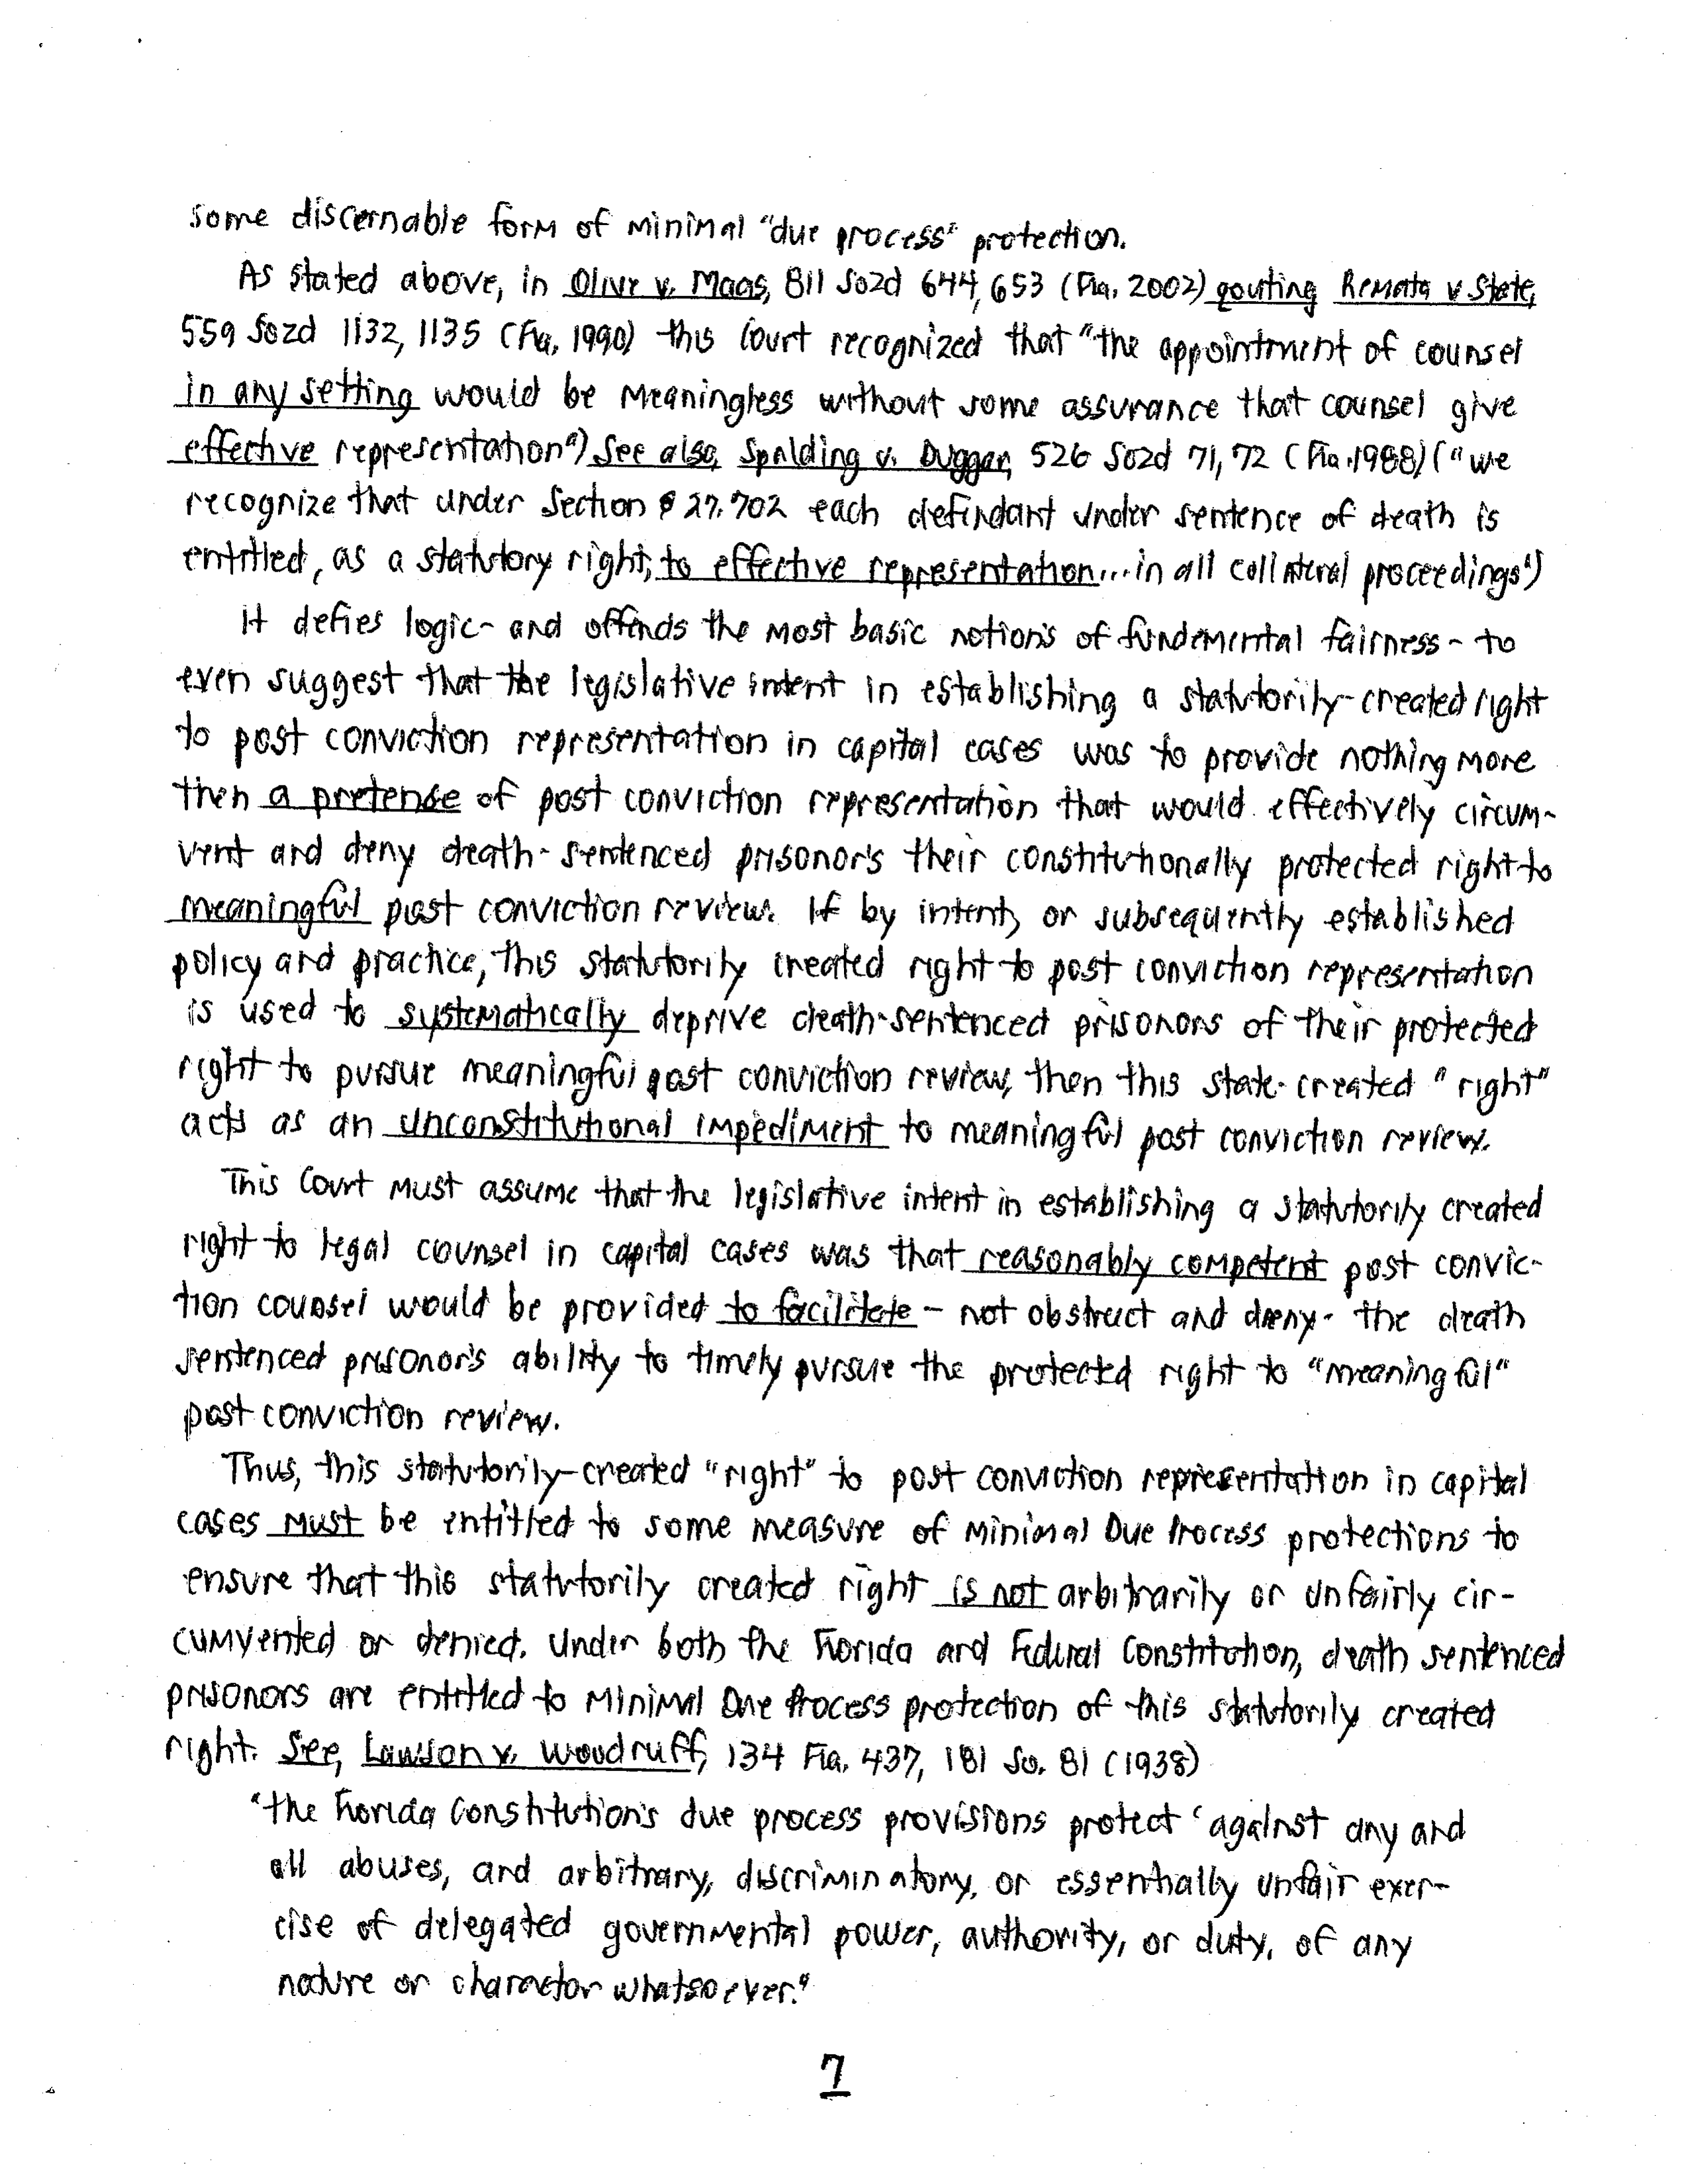 some discernable form of minimal "due process" protection.
As stated above, in Olive v. Maas, 811 So2d 644, 653 (Fla. 2002) qouting Remata v State,
559 So2d 1132, 1135 (Fla. 1990) this Court recognized that "the appointment of counsel
in any setting would be meaningless without some assurance that counsel give
effective representation") See also, Spalding v. Duggar, 526 So2d 71, 72 (Fla. 1988) ("we
recognize that under Section § 27.702 each defendant under sentence of death is
entitled, as a statutory right, to effective representation... in all collateral proceedings")
It defies logic - and offends the most basic notion's of fundemental fairness - to
even suggest that the legislative intent in establishing a statutorily-created right
to post conviction representation in capital cases was to provide nothing more
then a pretense of post conviction representation that would effectively circum-
vent and deny death-sentenced prisonor's their constitutionally protected right to
meaningful post conviction review. If by intent, or subsequently established
policy and practice, this statutorily created right to post conviction representation
is used to systematically deprive death-sentenced prisonors of their protected
right to pursue meaningful post conviction review, then this state-created "right"
acts as an unconstitutional impediment to meaningful post conviction review.
This Court must assume that the legislative intent in establishing a statutorily created
right to legal counsel in capital cases was that reasonably competent post convic-
tion counsel would be provided to facilitate - not obstruct and deny - the death
sentenced prisonor's ability to timely pursue the protected right to "meaningful"
post conviction review.
Thus, this statutorily-created "right" to post conviction representation in capital
cases must be entitled to some measure of minimal Due Process protections to
ensure that this statutorily created right is not arbitrarily or unfairly cir-
cumvented or denied. Under both the Florida and Federal Constitution, death sentenced
prisonors are entitled to minimal Due Process protection of this statutorily created
right. See, Lawson v. Woodruff, 134 Fla. 437, 181 So. 81 (1938)
"the Florida Constitution's due process provisions protect 'against any and
all abuses, and arbitrary, discriminatory, or essentially unfair exer-
cise of delegated governmental power, authority, or duty, of any
nature or charactor whatsoever."
7